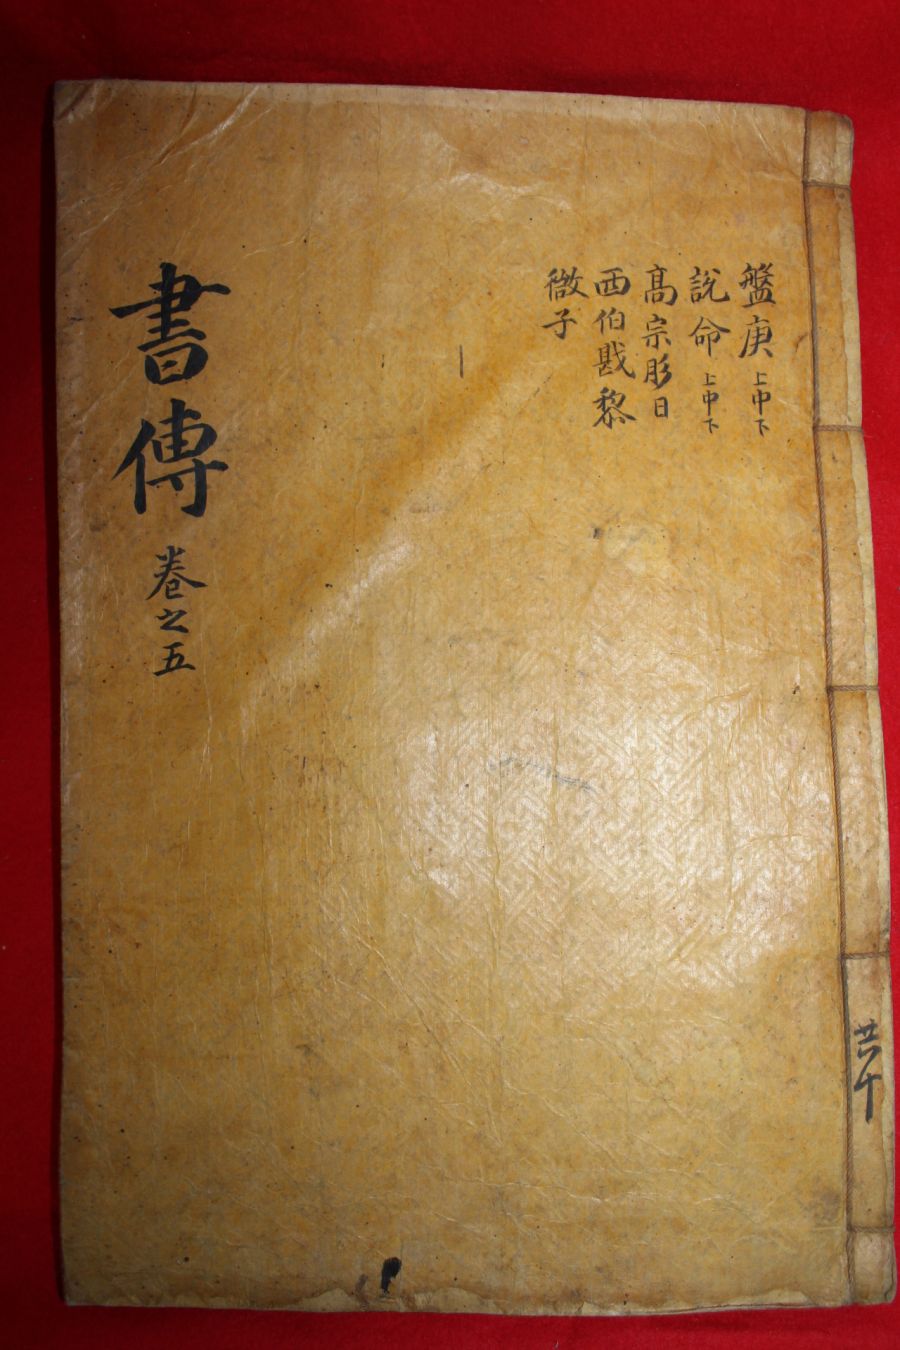 盤庚上中下
說命上中下
高宗肜日
西伯戡黎
微子
書傳 卷之五
共十